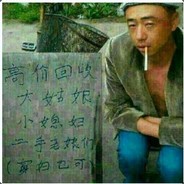 高价回收
大姑娘
小媳妇
二手老娘们
(寡妇也可